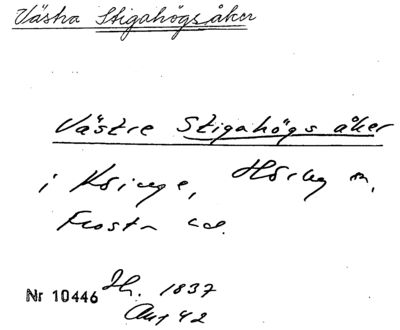 Västra Stigahögsåker
Västre Stigahögs åker
i Kringe, Hörby sn,
Frosta hd.
Nr 10446 Jb. 1837
Akt 42